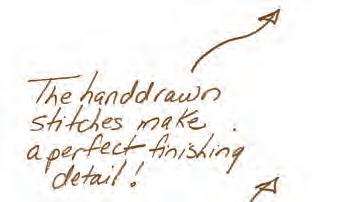 The handdrawn
stitches make
a perfect finishing
detail!